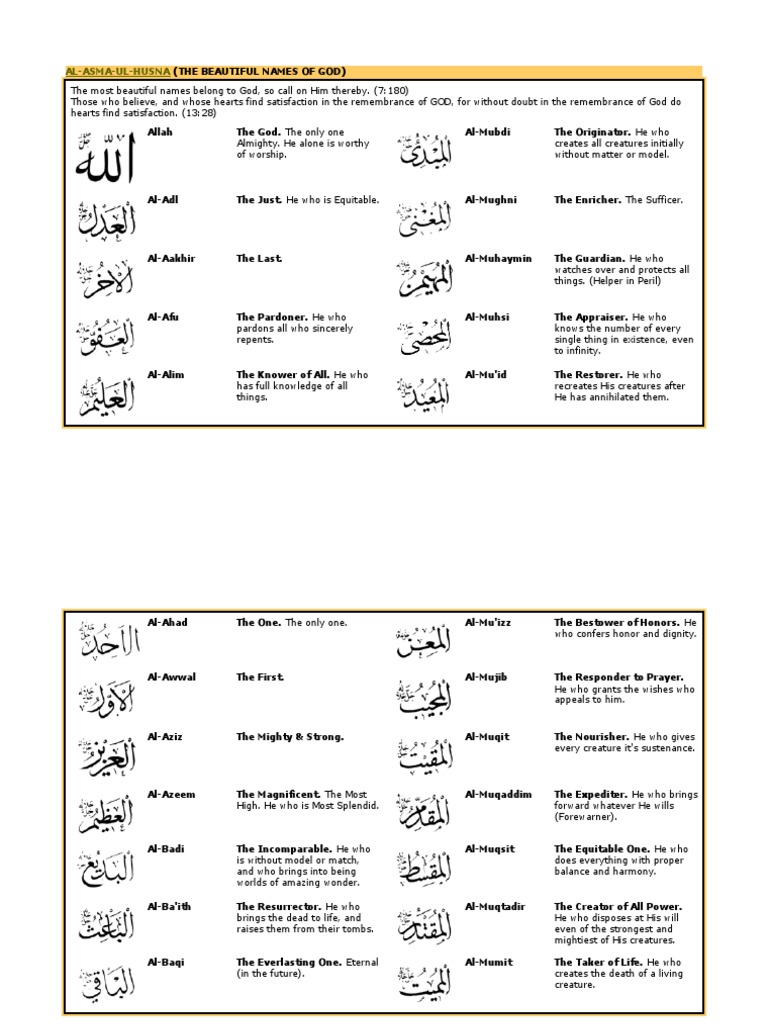 AL-ASMA-UL-HUSNA (THE BEAUTIFUL NAMES OF GOD)
The most beautiful names belong to God, so call on Him thereby. (7:180)
Those who believe, and whose hearts find satisfaction in the remembrance of GOD, for without doubt in the remembrance of God do
hearts find satisfaction. (13:28)
الله
Allah
The God. The only one
Almighty. He alone is worthy
of worship.
المبدئ
Al-Mubdi
The Originator. He who
creates all creatures initially
without matter or model.
العدل
Al-Adl
The Just. He who is Equitable.
المغني
Al-Mughni
The Enricher. The Sufficer.
الآخر
Al-Aakhir
The Last.
المهيمن
Al-Muhaymin
The Guardian. He who
watches over and protects all
things. (Helper in Peril)
العفو
Al-Afu
The Pardoner. He who
pardons all who sincerely
repents.
المحصي
Al-Muhsi
The Appraiser. He who
knows the number of every
single thing in existence, even
to infinity.
العليم
Al-Alim
The Knower of All. He who
has full knowledge of all
things.
المعيد
Al-Mu'id
The Restorer. He who
recreates His creatures after
He has annihilated them.
الاحد
Al-Ahad
The One. The only one.
المعز
Al-Mu'izz
The Bestower of Honors. He
who confers honor and dignity.
الأول
Al-Awwal
The First.
المجيب
Al-Mujib
The Responder to Prayer.
He who grants the wishes who
appeals to him.
العزيز
Al-Aziz
The Mighty & Strong.
المقيت
Al-Muqit
The Nourisher. He who gives
every creature it's sustenance.
العظيم
Al-Azeem
The Magnificent. The Most
High. He who is Most Splendid.
المقدم
Al-Muqaddim
The Expediter. He who brings
forward whatever He wills
(Forewarner).
البديع
Al-Badi
The Incomparable. He who
is without model or match,
and who brings into being
worlds of amazing wonder.
المقسط
Al-Muqsit
The Equitable One. He who
does everything with proper
balance and harmony.
الباعث
Al-Ba'ith
The Resurrector. He who
brings the dead to life, and
raises them from their tombs.
المقتدر
Al-Muqtadir
The Creator of All Power.
He who disposes at His will
even of the strongest and
mightiest of His creatures.
الباقي
Al-Baqi
The Everlasting One. Eternal
(in the future).
المميت
Al-Mumit
The Taker of Life. He who
creates the death of a living
creature.